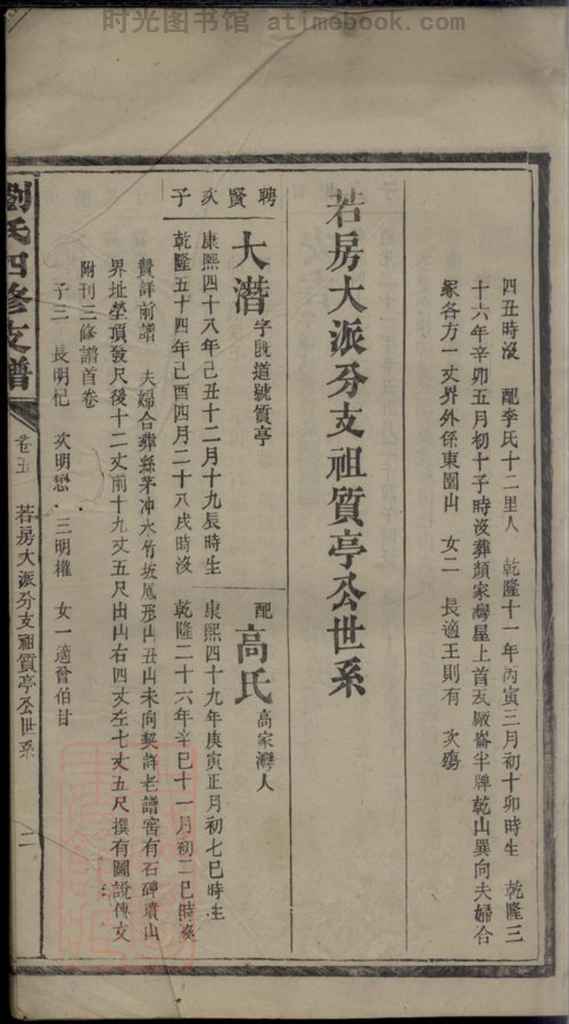 时光图书馆 atimebook.com
四丑時沒 配李氏十二里人 乾隆十一年丙寅三月初十卯時生 乾隆三
十六年辛卯五月初十子時沒葬顏家灣屋上首瓦厰崙半牌乾山巽向夫婦合
冢各方一丈界外係東園山 女二 長適王則有 次殤
若房大派分支祖質亭公世系
聘賢次子
大潛字既道號質亭
康熙四十八年己丑十二月十九辰時生
乾隆五十四年己酉四月二十八戌時沒
配高氏高家灣人
康熙四十九年庚寅正月初七巳時生
乾隆二十六年辛巳十一月初二巳時歿
贊詳前譜 夫婦合葬縣茅冲水竹坂鳳形山丑山未向契詳老譜窨有石碑墳山
界址塋頂發尺後十二丈前十九丈五尺出山右四丈左七丈五尺撰有圖說傳文
附刊三修譜首卷
子三 長明杞 次明懋 三明權 女一適曾伯甘
劉氏四修支譜 卷五 若房大派分支祖質亭公世系 二